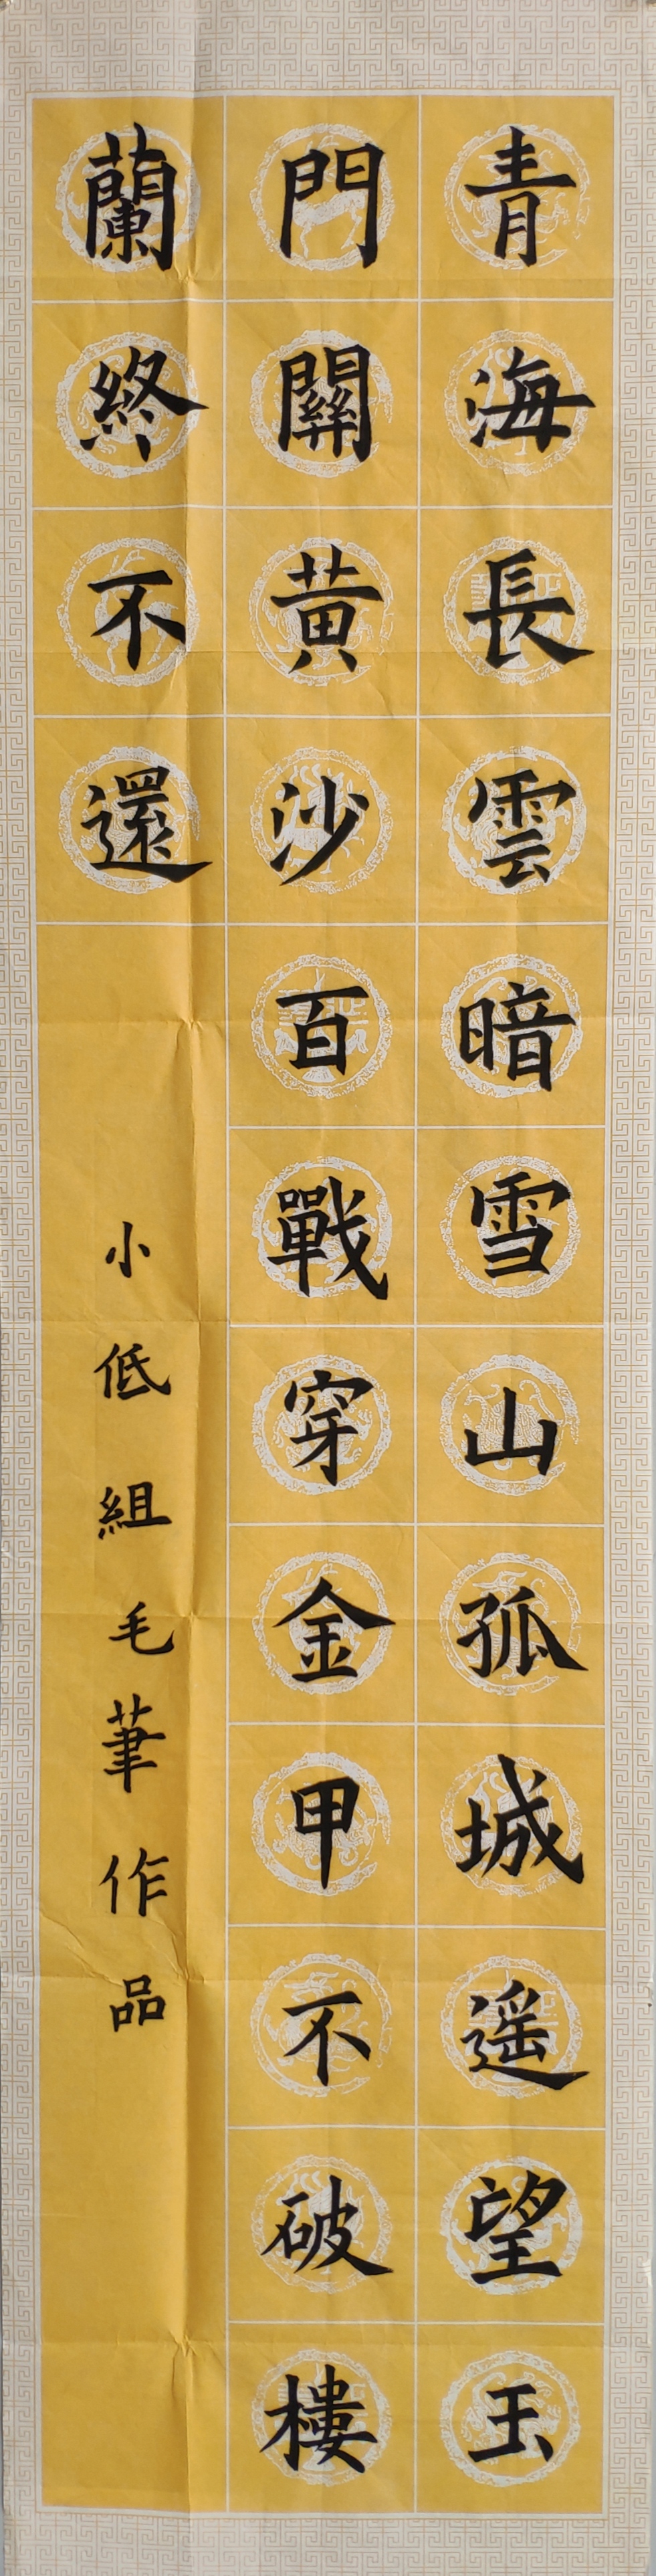 青海長雲暗雪山孤城遥望玉
門關黄沙百戰穿金甲不破樓
蘭終不還
小低組毛筆作品